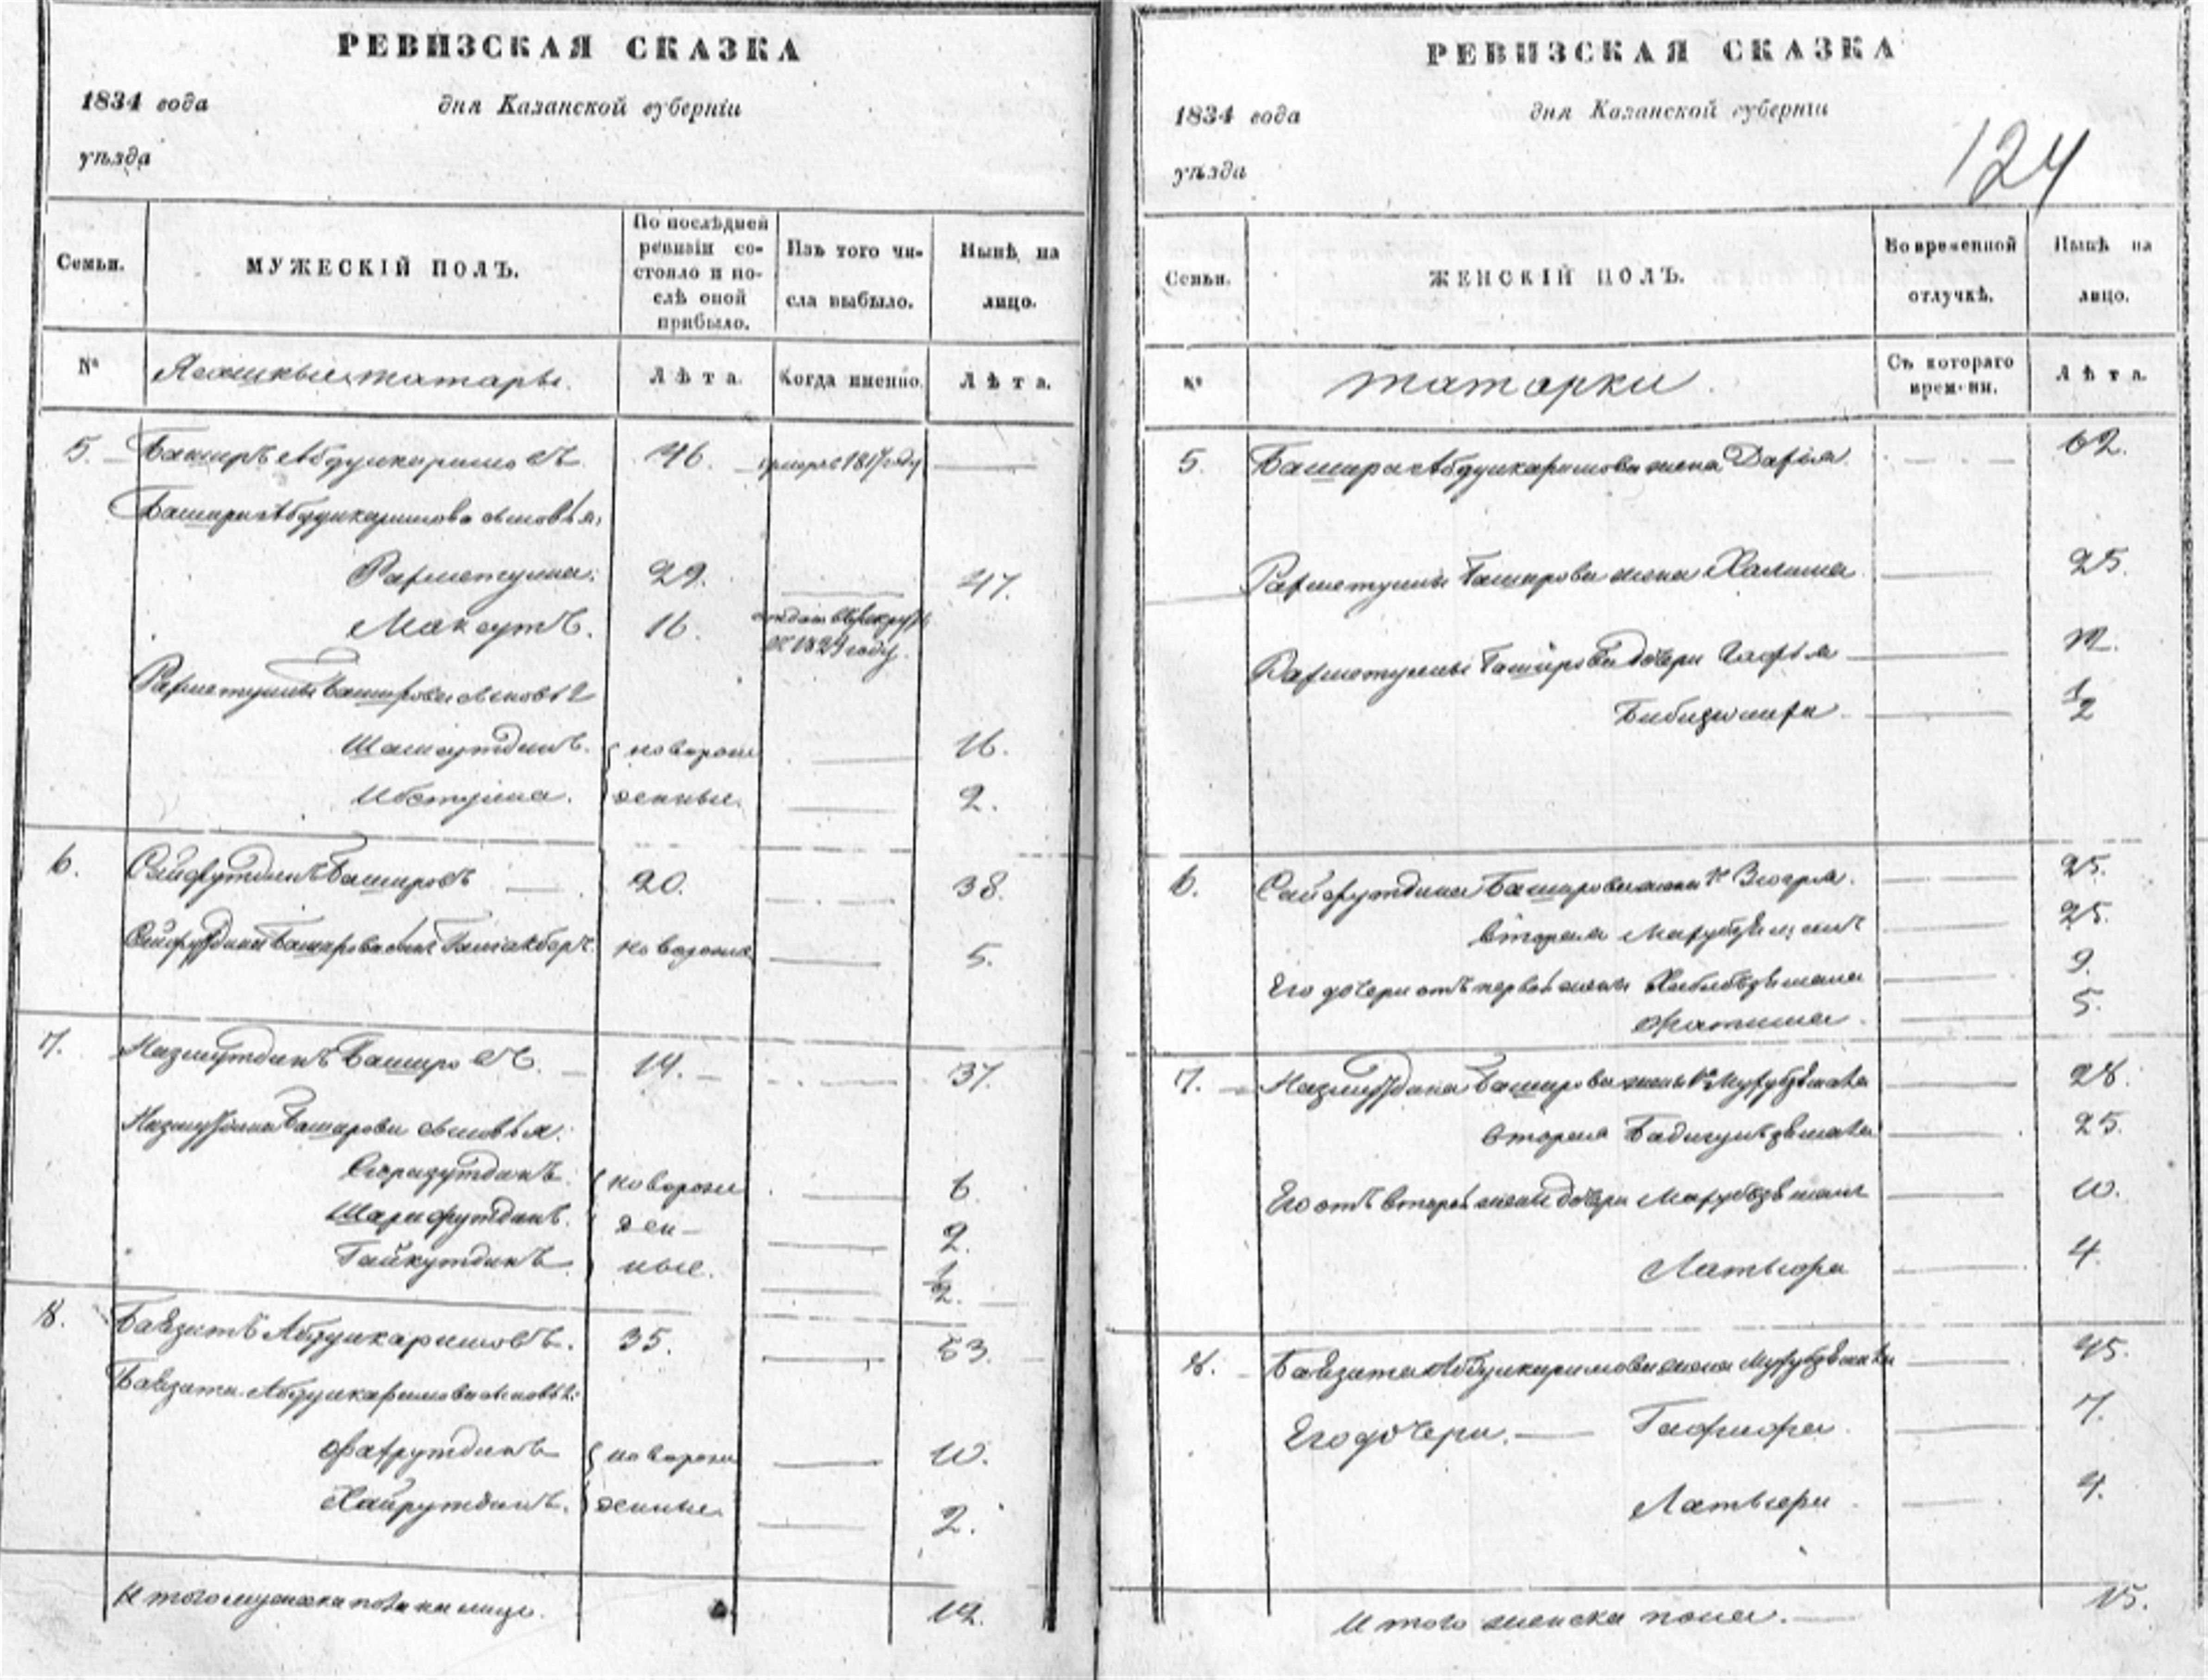 РЕВИЗСКАЯ СКАЗКА
1834 года дня Казанской губерніи
уѣзда
Семьи. МУЖЕСКІЙ ПОЛЪ. По послѣдней ревизіи состояло и послѣ оной прибыло. Изъ того числа выбыло. Нынѣ на лицо.
№ Ясашные татары. Лѣта. Когда именно. Лѣта.
5. Баширъ Абдулкаримовъ 46. 1817 году
Башира Абдулкаримова сыновья:
Рахметулла. 29. 47.
Максутъ. 16. отдан в рекруты
в 1829 году.
Рахметуллы Баширова сыновья
Шамсутдинъ. новорож 16.
Ибетулла. денные. 2.
6. Сайфутдинъ Башировъ 20. 38.
Сайфутдина Баширова сынъ новорожд 5.
7. Назмутдинъ Башировъ. 19. 37.
Назмутдина Баширова сыновья:
Сиразутдинъ. новорож 6.
Шарифутдинъ. ден- 2.
Гайнутдинъ ные. 1/2.
8. Баязитъ Абдулкаримовъ. 35. 53.
Баязита Абдулкаримова сыновья:
Фахрутдинъ новорож 10.
Хайрутдинъ. денные. 2.
Итого мужска пола на лицо. 12.
РЕВИЗСКАЯ СКАЗКА
1834 года дня Казанской губерніи
уѣзда
124
Семьи. ЖЕНСКІЙ ПОЛЪ. Во временной отлучкѣ. Нынѣ на лицо.
№ татарки. Съ котораго времени. Лѣта.
5. Башира Абдулкаримова жена 62.
Рахметуллы Баширова жена Халима 25.
Рахметуллы Баширова дочери
1/2
6. Сайфутдина Баширова жена 1я Зюгря. 25.
вторая 25.
Его дочери отъ первой жены 9.
Фатима. 5.
7. Назмутдина Баширова жена 1я 28.
вторая 25.
Его отъ второй жены дочери 10.
4.
8. Баязита Абдулкаримова жена 45.
Его дочери. 7.
4.
Итого женска пола. 15.